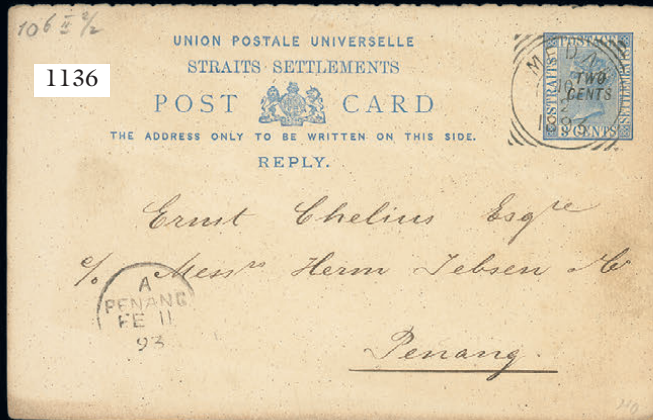 106 II 2/2
1136
UNION POSTALE UNIVERSELLE
STRAITS SETTLEMENTS
POST CARD
THE ADDRESS ONLY TO BE WRITTEN ON THIS SIDE.
REPLY.
STRAITS
SETTLEMENTS
TWO
CENTS
MEDAN
10
2
Ernst Chelius Esqre
c/o Messrs Herm Jebsen & Co
Penang
A
PENANG
FE 11
93